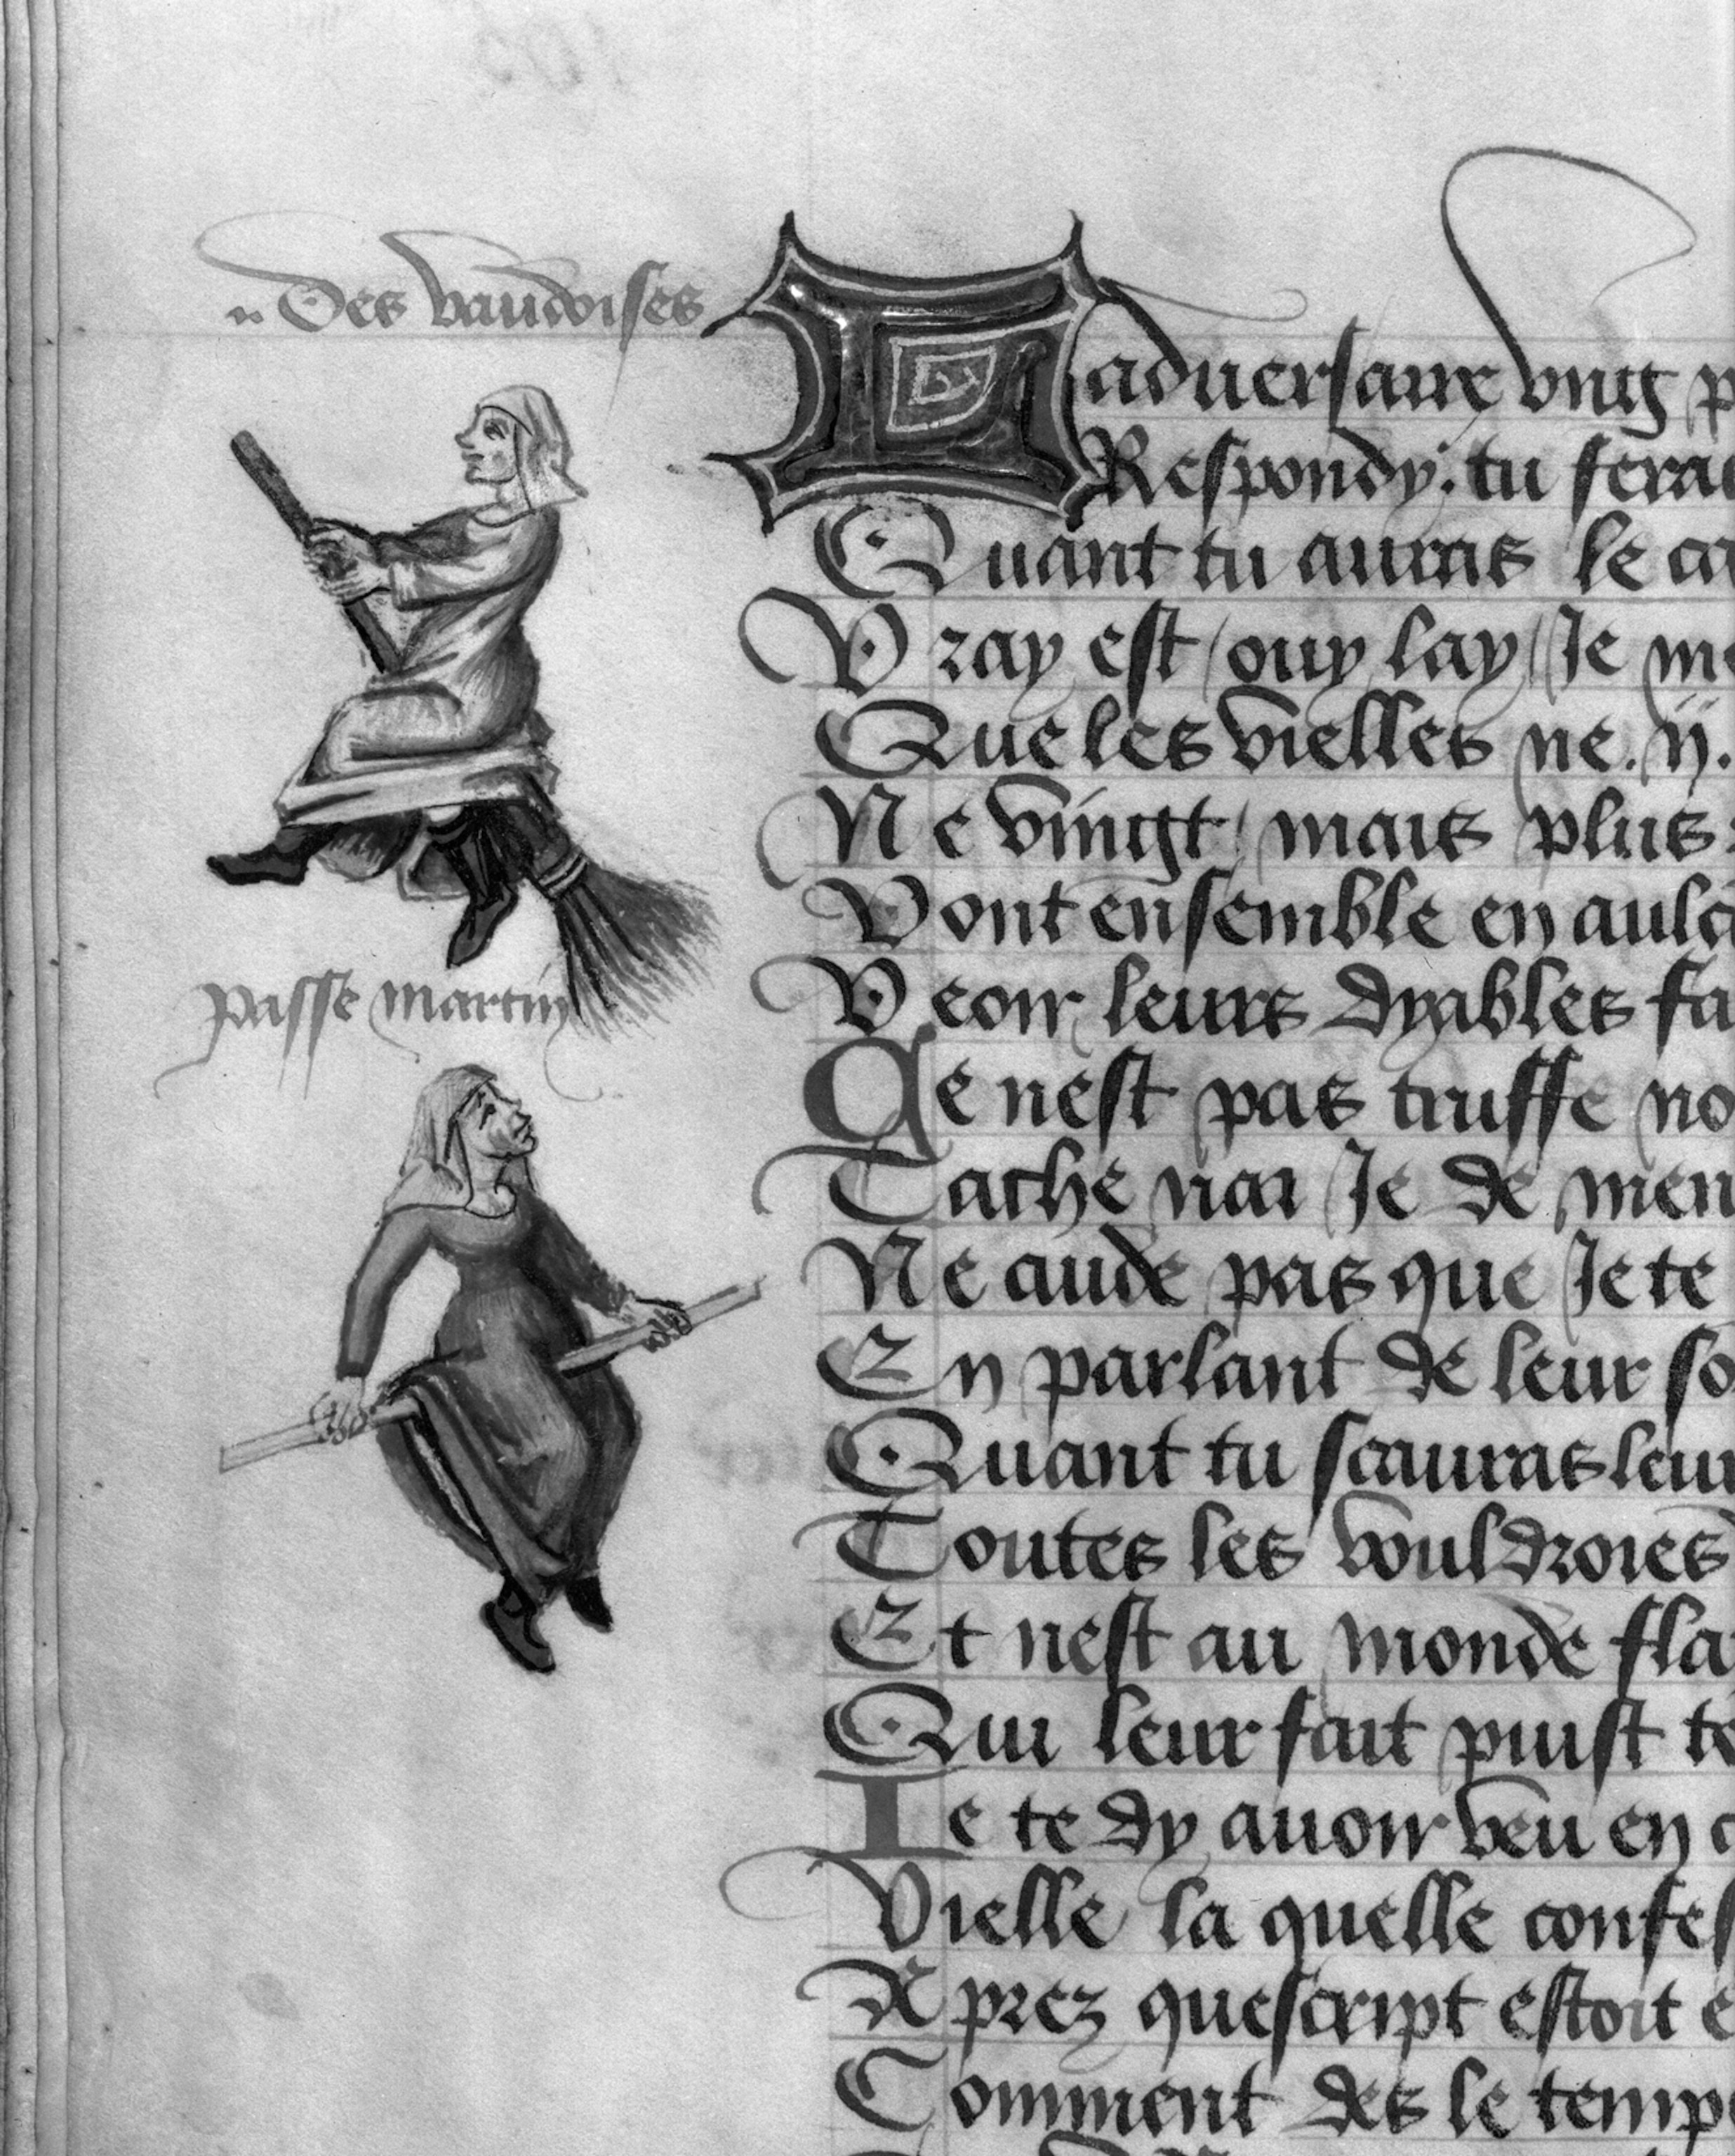 Des vaudoises
passe martin
Ladversaire vng
Respondy: tu seras
Quant tu auras le
Vray est / ouy lay / Je
Que les vielles ne .ij.
Ne vingt / mais plus
Vont ensemble en
Veoir leurs dyables
Ce nest pas truffe
Tache nai Je de
Ne cuide pas que Je te
En parlant de leur
Quant tu scauras
Toutes les vouldroies
Et nest au monde
Qui leur fait puist
Je te dy auoir veu en
Vielle la quelle
Aprez quescript estoit
Comment des le